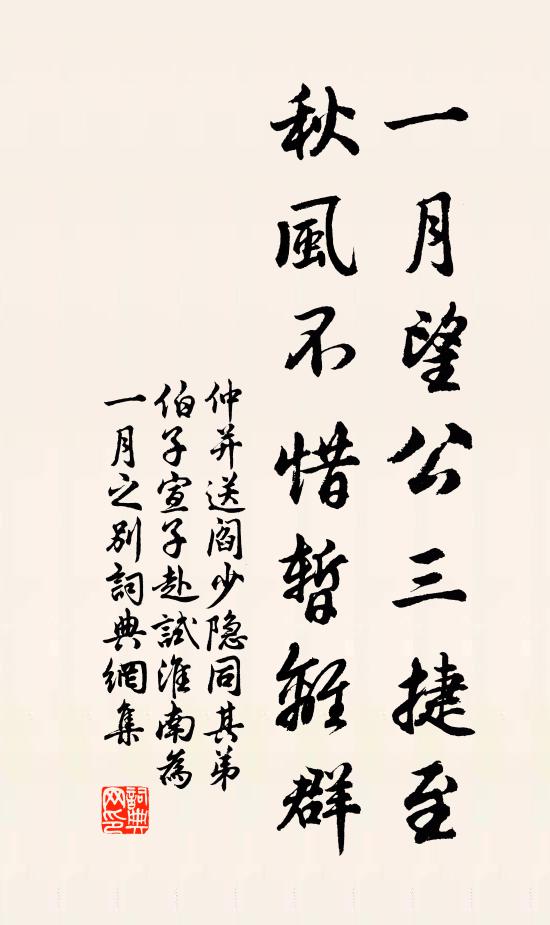 一月望公三捷至
秋風不惜暫離群
仲并送閻少隐同其弟
伯子宣子赴試淮南為
一月之别詞典網集
詞典网印